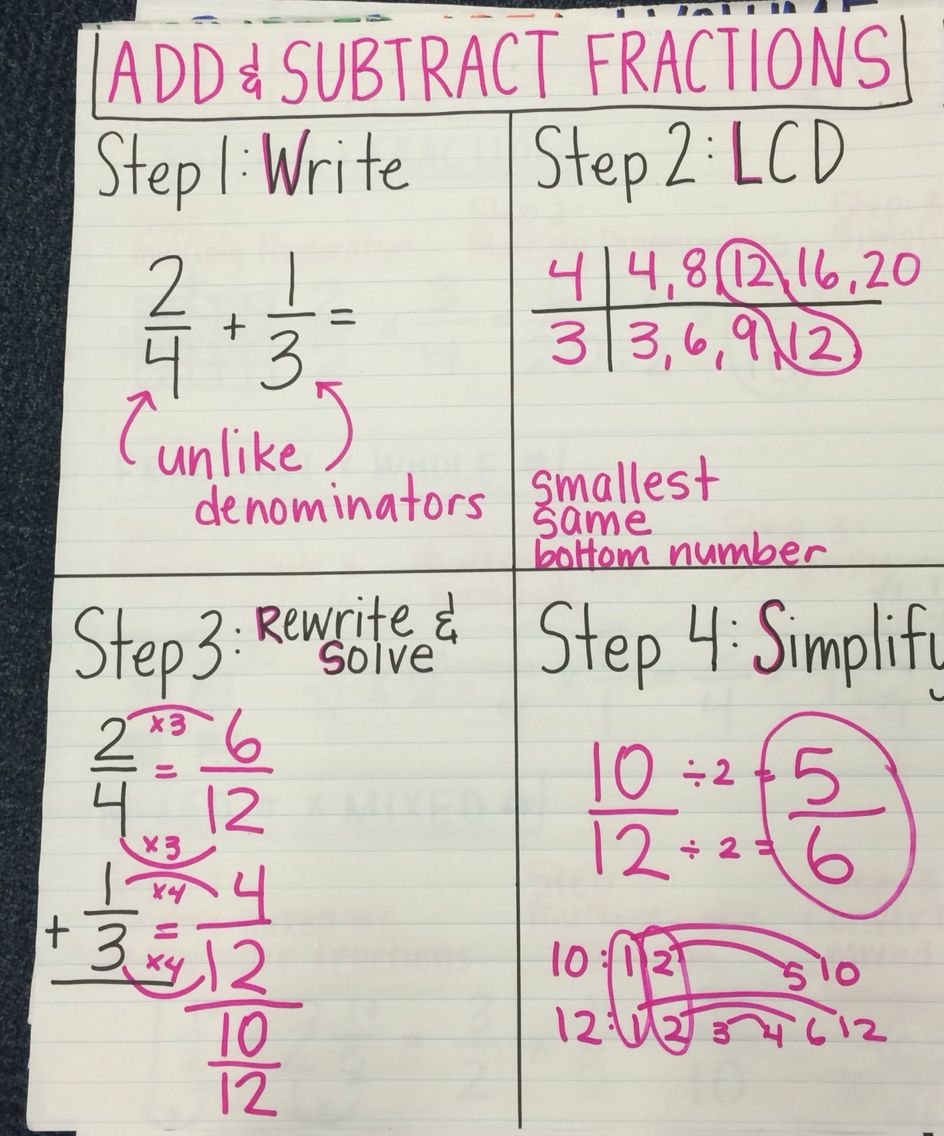 ADD & SUBTRACT FRACTIONS
Step 1: Write
2/4 + 1/3 =
unlike
denominators
Step 2: LCD
4 | 4, 8, 12, 16, 20
3 | 3, 6, 9, 12
smallest
same
bottom number
Step 3: Rewrite &
Solve
x3
2/4 = 6/12
x3
x4
+ 1/3 = 4/12
x4
10/12
Step 4: Simplify
10 ÷ 2 = 5
12 ÷ 2 = 6
10: 1 2 5 10
12: 1 2 3 4 6 12